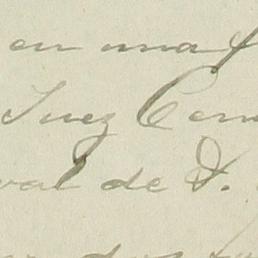 en una
Juez Com
val de S.